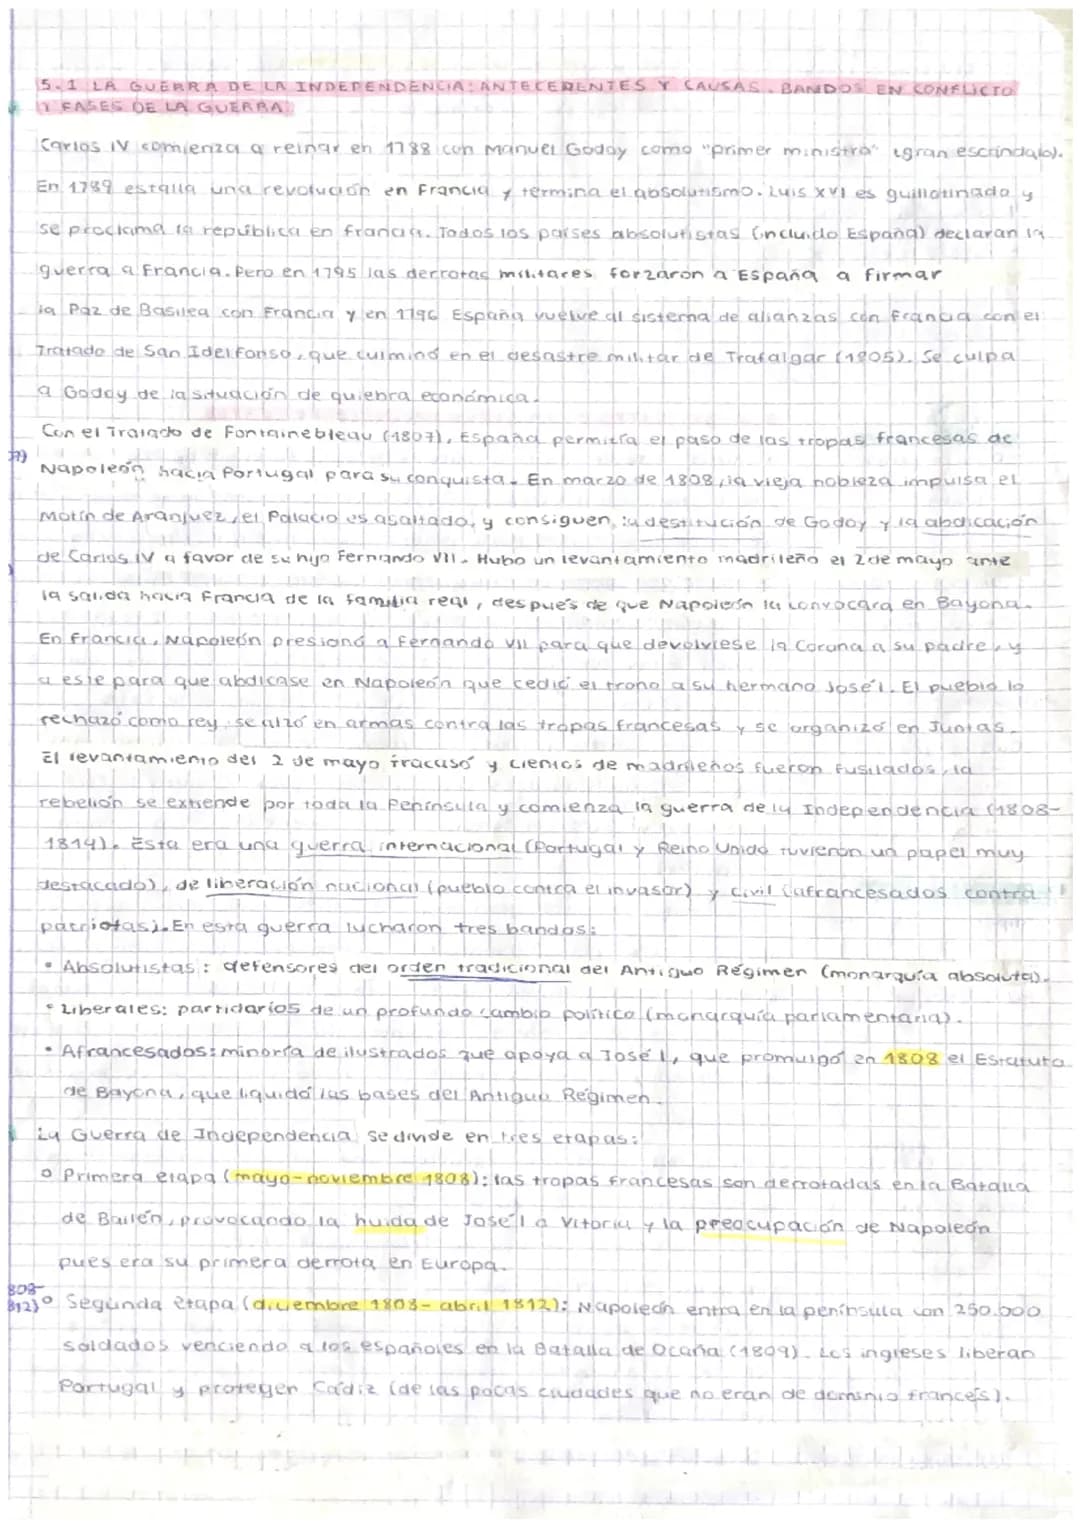 5.1 LA GUERRA DE LA INDEPENDENCIA: ANTECEDENTES Y CAUSAS. BANDOS EN CONFLICTO
Y FASES DE LA GUERRA
Carlos IV comienza a reinar en 1788 con Manuel Godoy como "primer ministro" (gran escándalo).
En 1789 estalla una revolución en Francia y termina el absolutismo. Luis XVI es guillotinado y
se proclama la república en francia. Todos los países absolutistas (incluido España) declaran la
guerra a Francia. Pero en 1795 las derrotas militares forzaron a España a firmar
la Paz de Basilea con Francia y en 1796 España vuelve al sistema de alianzas con Francia con el
Tratado de San Idelfonso, que culminó en el desastre militar de Trafalgar (1805). Se culpa
a Godoy de la situación de quiebra económica.
Con el Tratado de Fontainebleau (1807), España permitía el paso de las tropas francesas de
Napoleón hacia Portugal para su conquista. En marzo de 1808, la vieja nobleza impulsa el
Motín de Aranjuez, el Palacio es asaltado, y consiguen la destitución de Godoy y la abdicación
de Carlos IV a favor de su hijo Fernando VII. Hubo un levantamiento madrileño el 2 de mayo ante
la salida hacia Francia de la familia real, después de que Napoleón la convocara en Bayona.
En francia, Napoleón presionó a Fernando VII para que devolviese la Corona a su padre, y
a este para que abdicase en Napoleón que cedió el trono a su hermano José I. El pueblo lo
rechazó como rey, se alzó en armas contra las tropas francesas y se organizó en Juntas.
El levantamiento del 2 de mayo fracasó y cientos de madrileños fueron fusilados, la
rebelión se extiende por toda la Península y comienza la guerra de la Independencia (1808-
1814). Esta era una guerra internacional (Portugal y Reino Unido tuvieron un papel muy
destacado), de liberación nacional (pueblo contra el invasor) y civil (afrancesados contra
patriotas). En esta guerra lucharon tres bandos:
• Absolutistas: defensores del orden tradicional del Antiguo Régimen (monarquía absoluta).
• Liberales: partidarios de un profundo cambio político (monarquía parlamentaria).
• Afrancesados: minoría de ilustrados que apoya a José I, que promulgó en 1808 el Estatuto
de Bayona, que liquidó las bases del Antiguo Régimen.
La Guerra de Independencia se divide en tres etapas:
o Primera etapa (mayo-noviembre 1808): las tropas francesas son derrotadas en la Batalla
de Bailén, provocando la huida de José I a Vitoria y la preocupación de Napoleón
pues era su primera derrota en Europa.
808-
812)
o Segunda etapa (diciembre 1808- abril 1812): Napoleón entra en la península con 250.000
soldados venciendo a los españoles en la Batalla de Ocaña (1809). Los ingleses liberan
Portugal y protegen Cádiz (de las pocas ciudades que no eran de dominio francés).